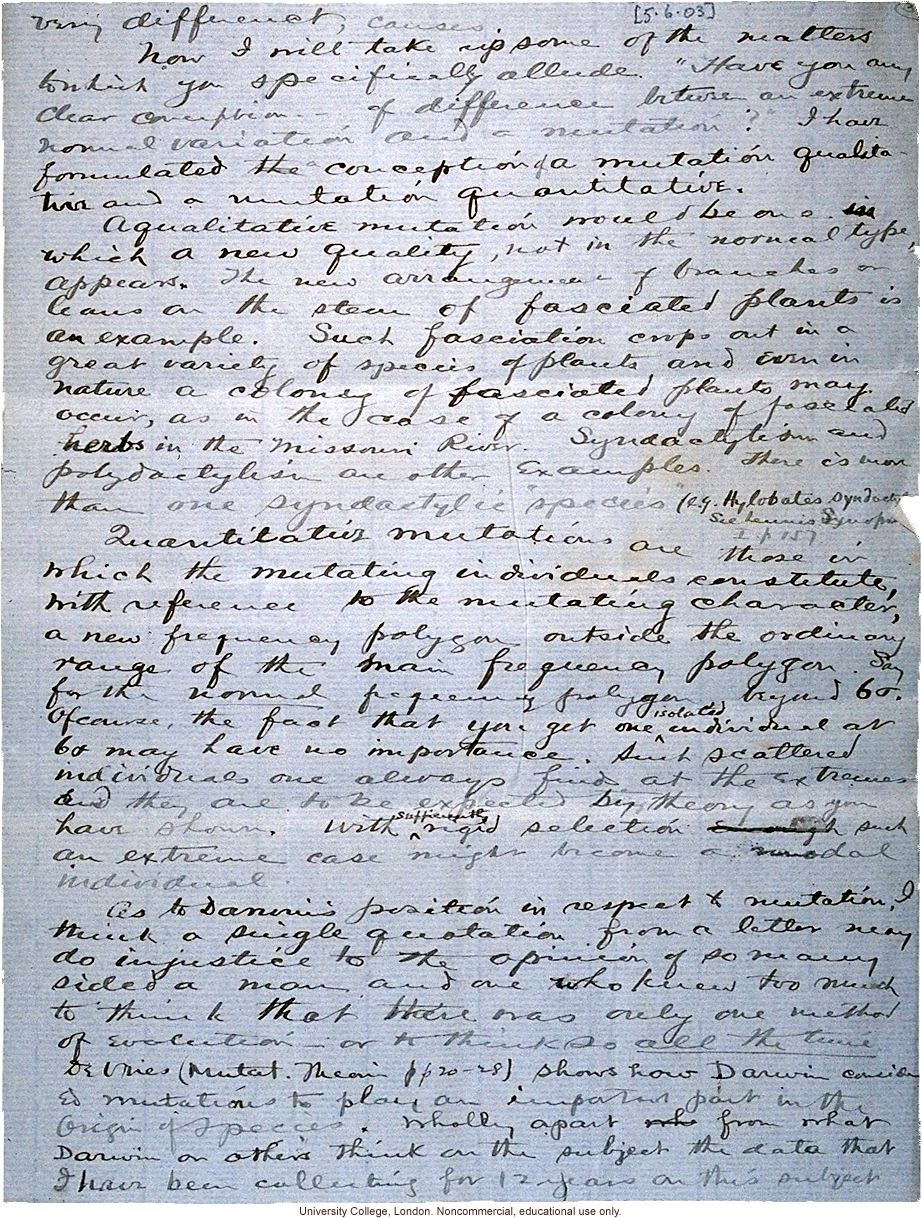 very different, causes [5.6.03]
Now I will take up some of the matters
to which you specifically allude. "Have you any
clear conception – of difference between an extreme
normal variation and a mutation?" I have
formulated the conception of a mutation qualita-
tive and a mutation quantitative.
A qualitative mutation would be one in
which a new quality, not in the normal type,
appears. The new arrangement of branches or
leaves on the stem of fasciated plants is
an example. Such fasciation crops out in a
great variety of species of plants and even in
nature a colony of fasciated plants may
occur, as in the case of a colony of fasciated
herbs in the Missouri River. Syndactylism and
polydactylism are other examples. There is more
than one syndactylic "species" (e.g. Hylobates syndacty
See
p 157
Quantitative mutations are those in
which the mutating individuals constitute,
with reference to the mutating character,
a new frequency polygon outside the ordinary
range of the main frequency polygon. Say
for the normal frequency polygon beyond 6σ.
Of course, the fact that you get one isolated individual at
6σ may have no importance. Such scattered
individuals one always finds at the extremes
and they are to be expected by theory as you
have shown. With sufficiently rigid selection enough such
an extreme case might become a modal
individual.
As to Darwin's position in respect to mutation, I
think a single quotation from a letter may
do injustice to the opinion of so many
sided a man and one who knew too much
to think that there was only one method
of evolution – or to think so all the time
De Vries (Mutat. Theorie pp 20-28) shows how Darwin consider
ed mutations to play an important part in the
Origin of Species. Wholly apart from what
Darwin or others think on the subject the data that
I have been collecting for 12 years on this subject
University College, London. Noncommercial, educational use only.